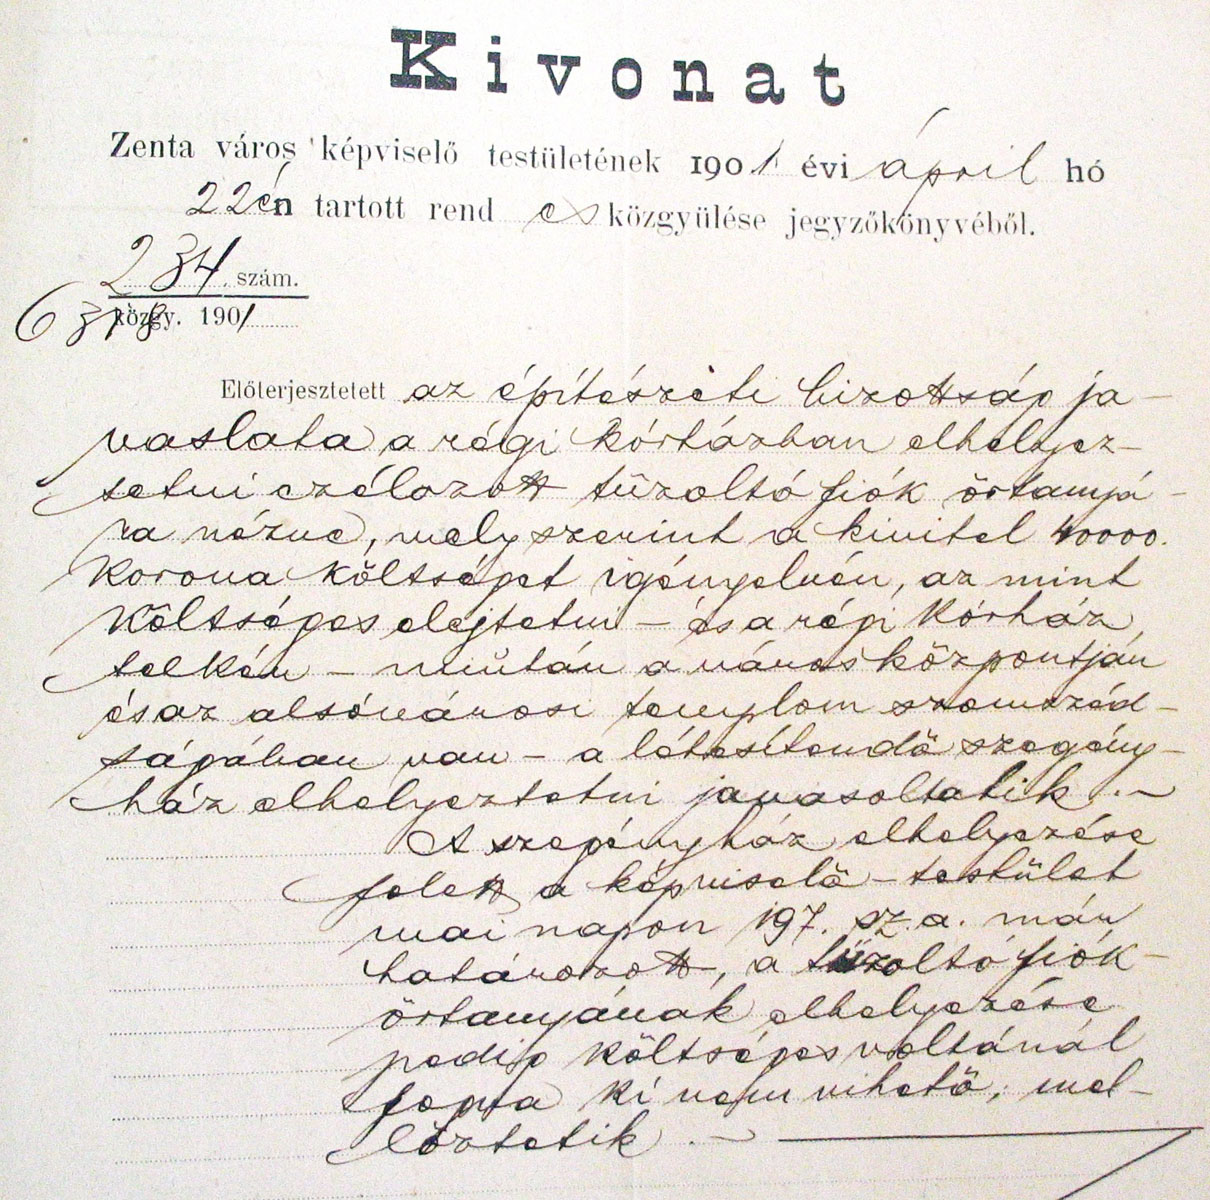 Kivonat
Zenta város képviselő testületének 1901 évi ápril hó
22én tartott rend es közgyülése jegyzőkönyvéből.
234. szám.
6378 közgy. 1901
Előterjesztetett az építészeti bizottság ja-
vaslata a régi kórházban elhelyez-
tetni czélozott tűzoltó fiók őrtanyá-
ra nézve, mely szerint a kivitel 40000.
korona költséget igényelvén, az mint
költséges elejtetni – és a régi kórház
telkén – miután a város központján
és az alsóvárosi templom szomszéd-
ságában van – a létesítendő szegény-
ház elhelyeztetni javasoltatik. –
A szegényház elhelyezése
felett a képviselő-testület
mai napon 197. sz. a. már
határozott, a tűzoltó fiók-
őrtanyának elhelyezése
pedig költséges voltánál
fogva ki nem vihető, mel-
lőztetik. –